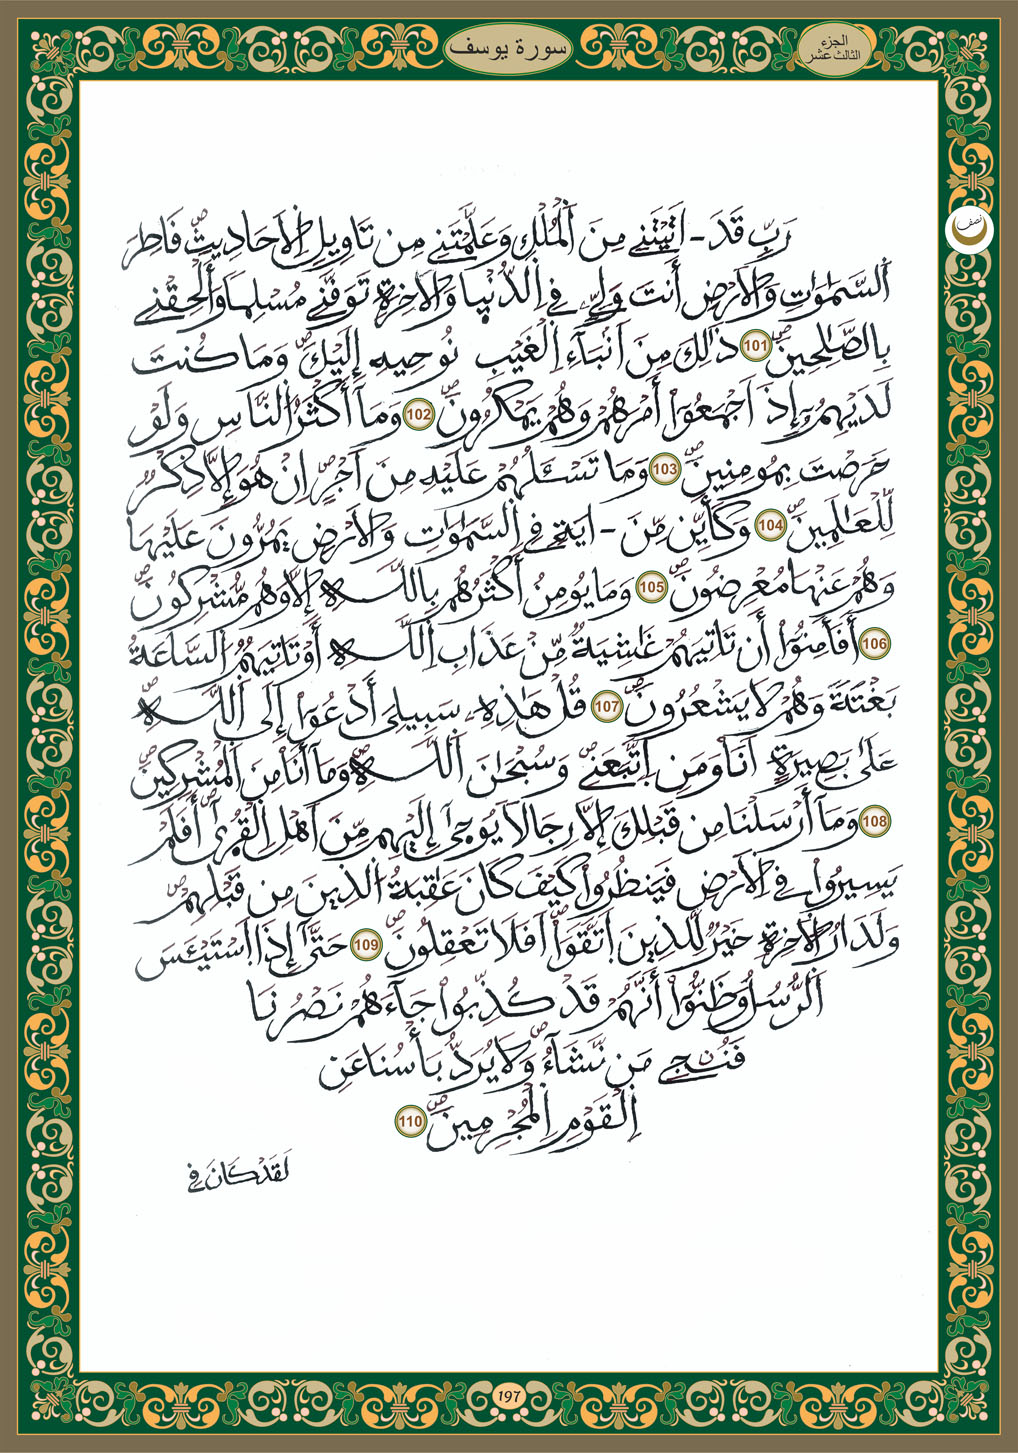 سورة يوسف
الجزء
الثالث عشر
نصف
رَبِّ قَدَ ـ اتَيْتَنِے مِنَ اَ۬لْمُلْكِ وَعَلَّمْتَنِے مِن تَاوِيلِ اِ۬لَاحَادِيثِۖ فَاطِرَ
اَ۬لسَّمَٰوَٰتِ وَالَارْضِ أَنتَ وَلِيِّۦ فِے اِ۬لدُّنْي۪ا وَالَاخِرَةِ تَوَفَّنِے مُسْلِماٗ وَأَلْحِقْنِے
بِالصَّٰلِحِينَۖ 101 ذَٰلِكَ مِنَ اَنۢبَآءِ اِ۬لْغَيْبِ نُوحِيهِ إِلَيْكَۖ وَمَا كُنتَ
لَدَيْهِمُۥٓ إِذَ اَجْمَعُوٓاْ أَمْرَهُمْ وَهُمْ يَمْكُرُونَۖ 102 وَمَآ أَكْثَرُ اُ۬لنَّاسِ وَلَوْ
حَرَصْتَ بِمُومِنِينَۖ 103 وَمَا تَسْـَٔلُهُمْ عَلَيْهِ مِنَ اَجْرٍۖ اِنْ هُوَ إِلَّا ذِكْرٞ
لِّلْعَٰلَمِينَۖ 104 وَكَأَيِّن مِّنَ ـ ايَةٖ فِے اِ۬لسَّمَٰوَٰتِ وَالَارْضِ يَمُرُّونَ عَلَيْهَا
وَهُمْ عَنْهَا مُعْرِضُونَۖ 105 وَمَا يُومِنُ أَكْثَرُهُم بِاللَّهِ إِلَّا وَهُم مُّشْرِكُونَۖ
106 أَفَأَمِنُوٓاْ أَن تَاتِيَهُمْ غَٰشِيَةٞ مِّنْ عَذَابِ اِ۬للَّهِ أَوْ تَاتِيَهُمُ اُ۬لسَّاعَةُ
بَغْتَةٗ وَهُمْ لَا يَشْعُرُونَۖ 107 قُلْ هَٰذِهِۦ سَبِيلِيَ أَدْعُوٓاْ إِلَى اَ۬للَّهِۖ
عَلَىٰ بَصِيرَةٍ اَنَا وَمَنِ اِ۪تَّبَعَنِےۖ وَسُبْحَٰنَ اَ۬للَّهِۖ وَمَآ أَنَا مِنَ اَ۬لْمُشْرِكِينَۖ
108 وَمَآ أَرْسَلْنَا مِن قَبْلِكَ إِلَّا رِجَالاٗ يُوحَىٰٓ إِلَيْهِم مِّنَ اَهْلِ اِ۬لْقُر۪ىٰٓۖ أَفَلَمْ
يَسِيرُواْ فِے اِ۬لَارْضِ فَيَنظُرُواْ كَيْفَ كَانَ عَٰقِبَةُ اُ۬لذِينَ مِن قَبْلِهِمْۖ
وَلَدَارُ اُ۬لَاخِرَةِ خَيْرٞ لِّلذِينَ اَ۪تَّقَوَاْۖ اَفَلَا تَعْقِلُونَۖ 109 حَتَّىٰٓ إِذَا اَ۪سْتَيْـَٔسَ
اَ۬لرُّسُلُ وَظَنُّوٓاْ أَنَّهُمْ قَدْ كُذِّبُواْ جَآءَهُمْ نَصْرُنَا
فَنُنجِے مَن نَّشَآءُۖ وَلَا يُرَدُّ بَأْسُنَا عَنِ
اِ۬لْقَوْمِ اِ۬لْمُجْرِمِينَۖ 110
لَقَدْ كَانَ فِے
197